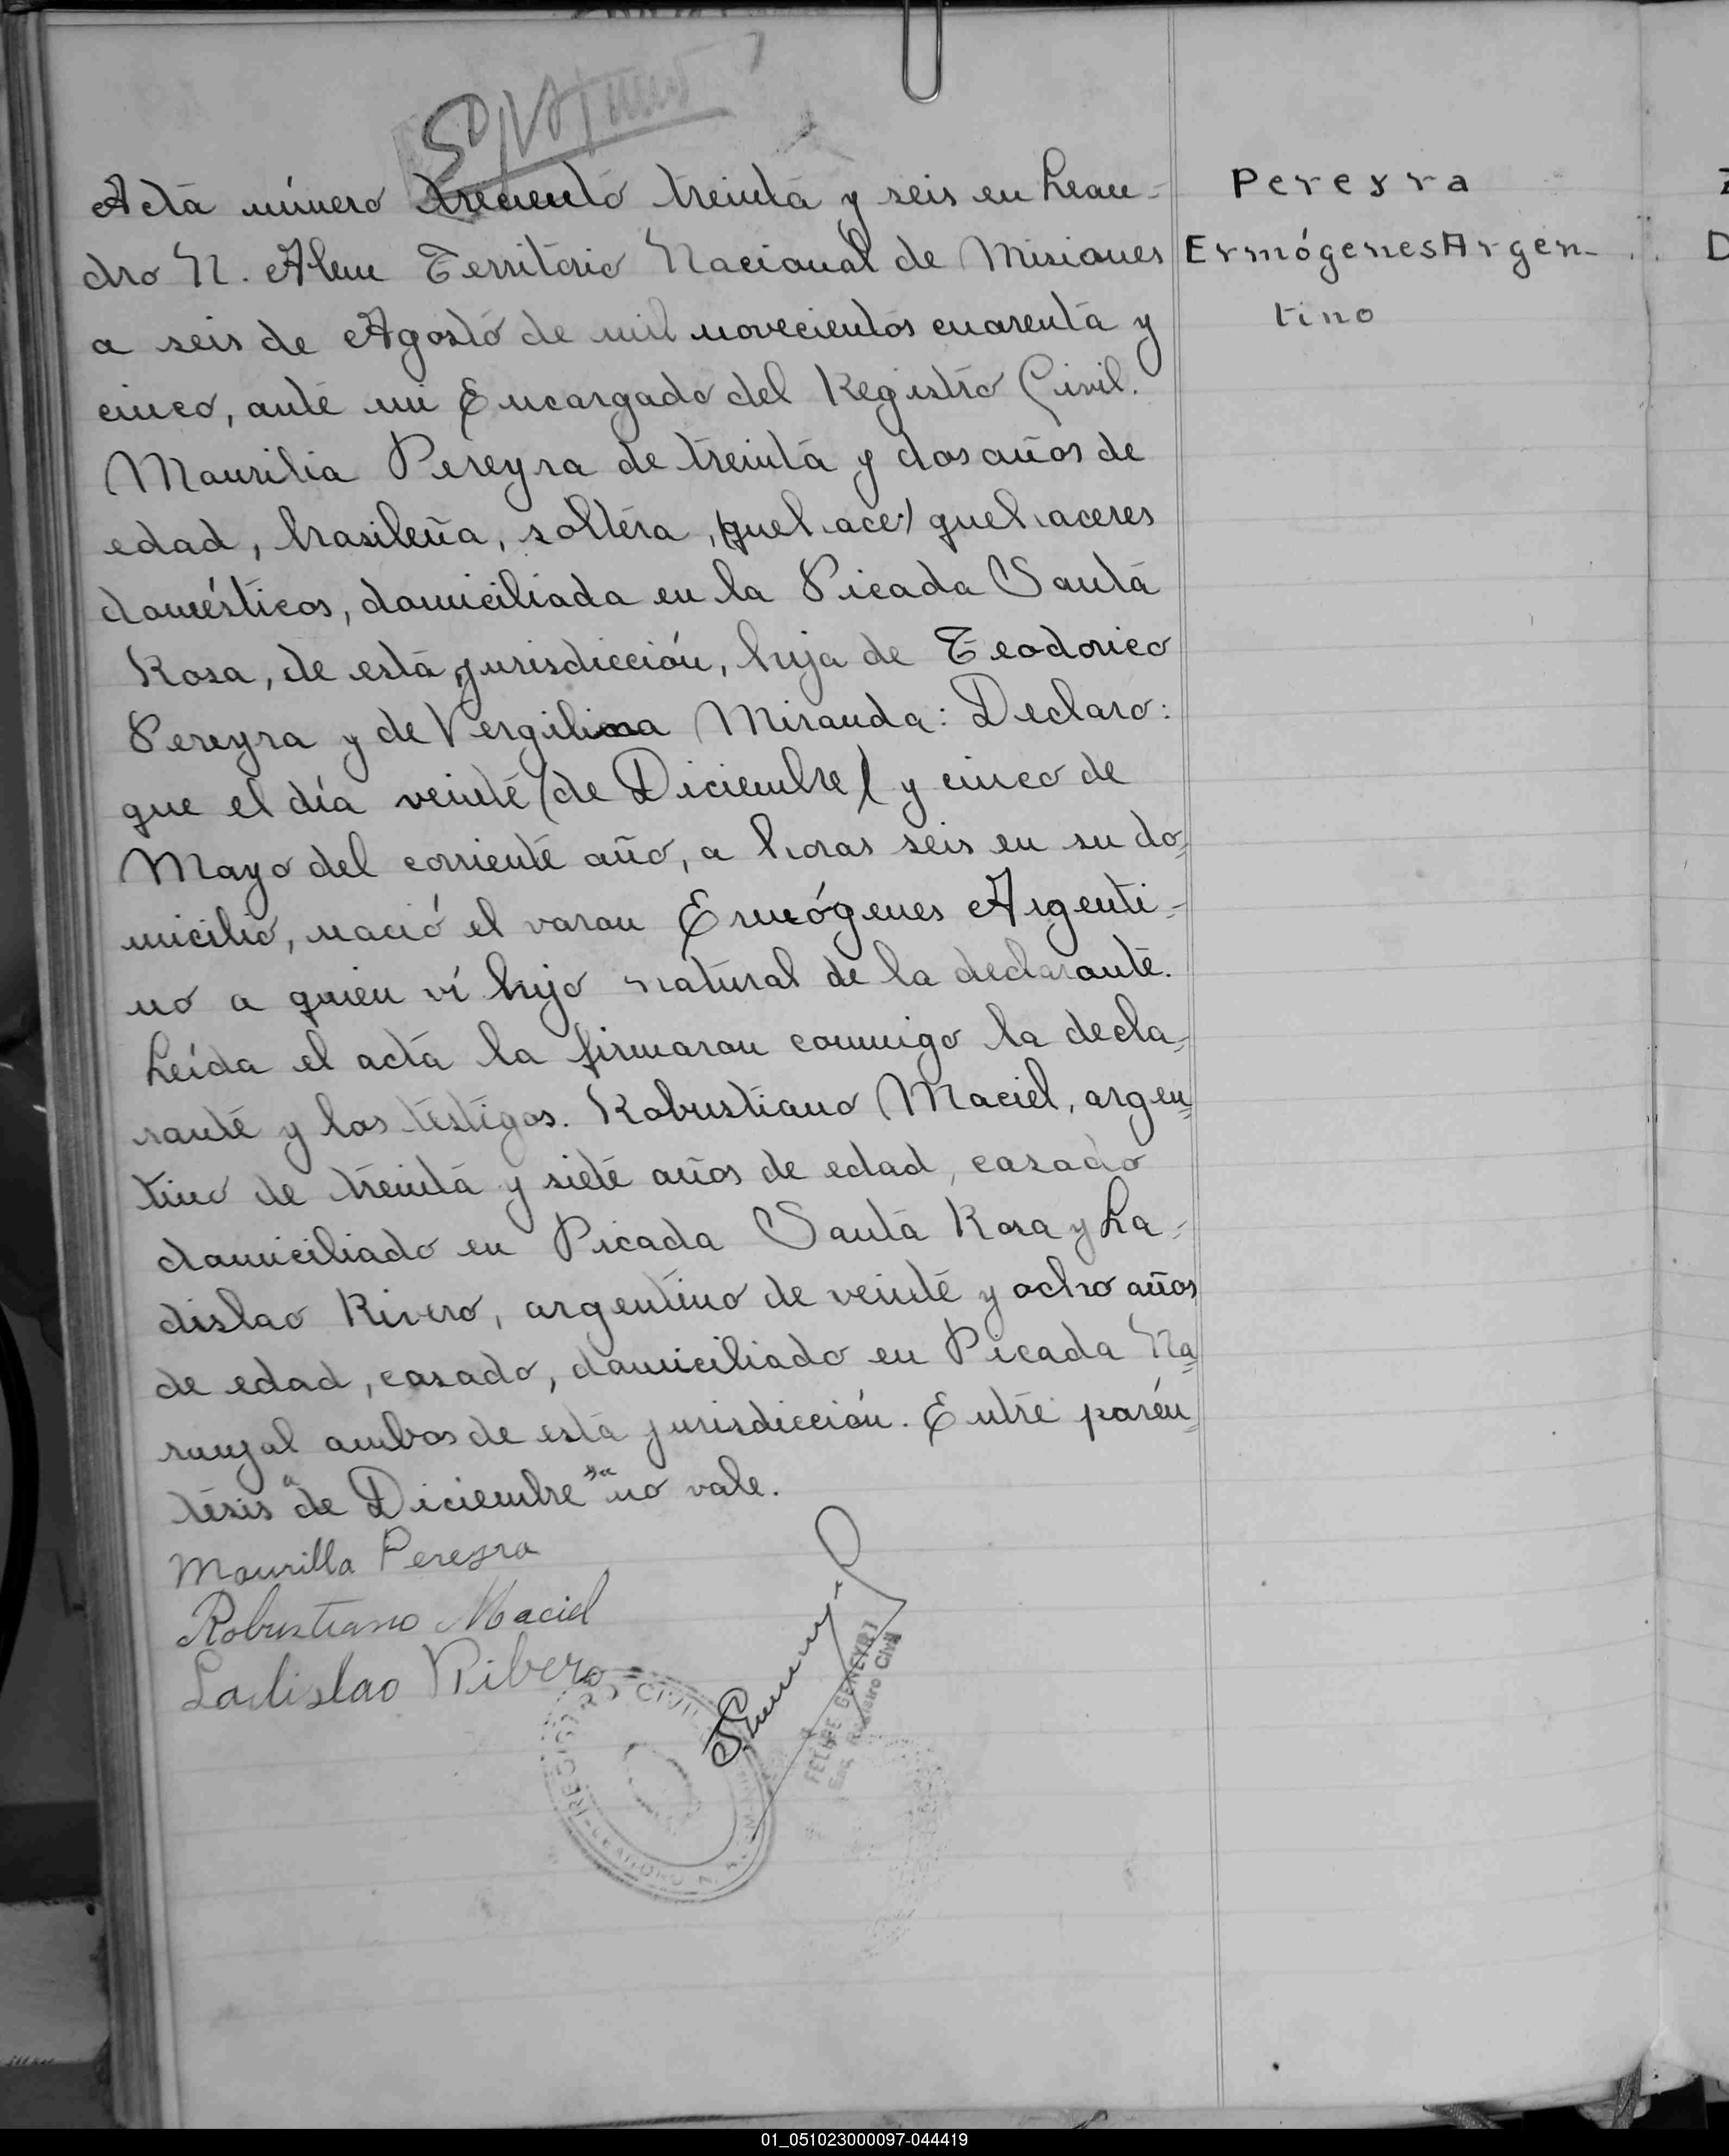 Acta número treciento treinta y seis en Lean-
dro N. Alem Territorio Nacional de Misiones
a seis de Agosto de mil novecientos cuarenta y
cinco, ante mi Encargado del Registro Civil.
Maurilia Pereyra de treinta y dos años de
edad, brasileña, soltera, (quehace) quehaceres
domésticos, domiciliada en la Picada Santa
Rosa, de esta jurisdicción, hija de Teodorico
Pereyra y de Vergilina Miranda: Declaro:
que el día veinte (de Diciembre) y cinco de
Mayo del corriente año, a horas seis en su do-
micilio, nació el varon Ermógenes Argenti-
no a quien ví hijo natural de la declarante.
Leída el acta la firmaron conmigo la decla-
rante y los testigos. Robustiano Maciel, argen-
tino de treinta y siete años de edad, casado
domiciliado en Picada Santa Rosa y La-
dislao Rivero, argentino de veinte y ocho años
de edad, casado, domiciliado en Picada Na-
ranjal ambos de esta jurisdicción. Entre parén-
tesis "de Diciembre" "no vale.
Maurilla Pereyra
Robustiano Maciel
Ladislao Ribero
FELIPE GENEYRT
Enc. Registro Civil
REGISTRO CIVIL
Pereyra
Ermógenes Argen-
tino
01_051023000097-044419